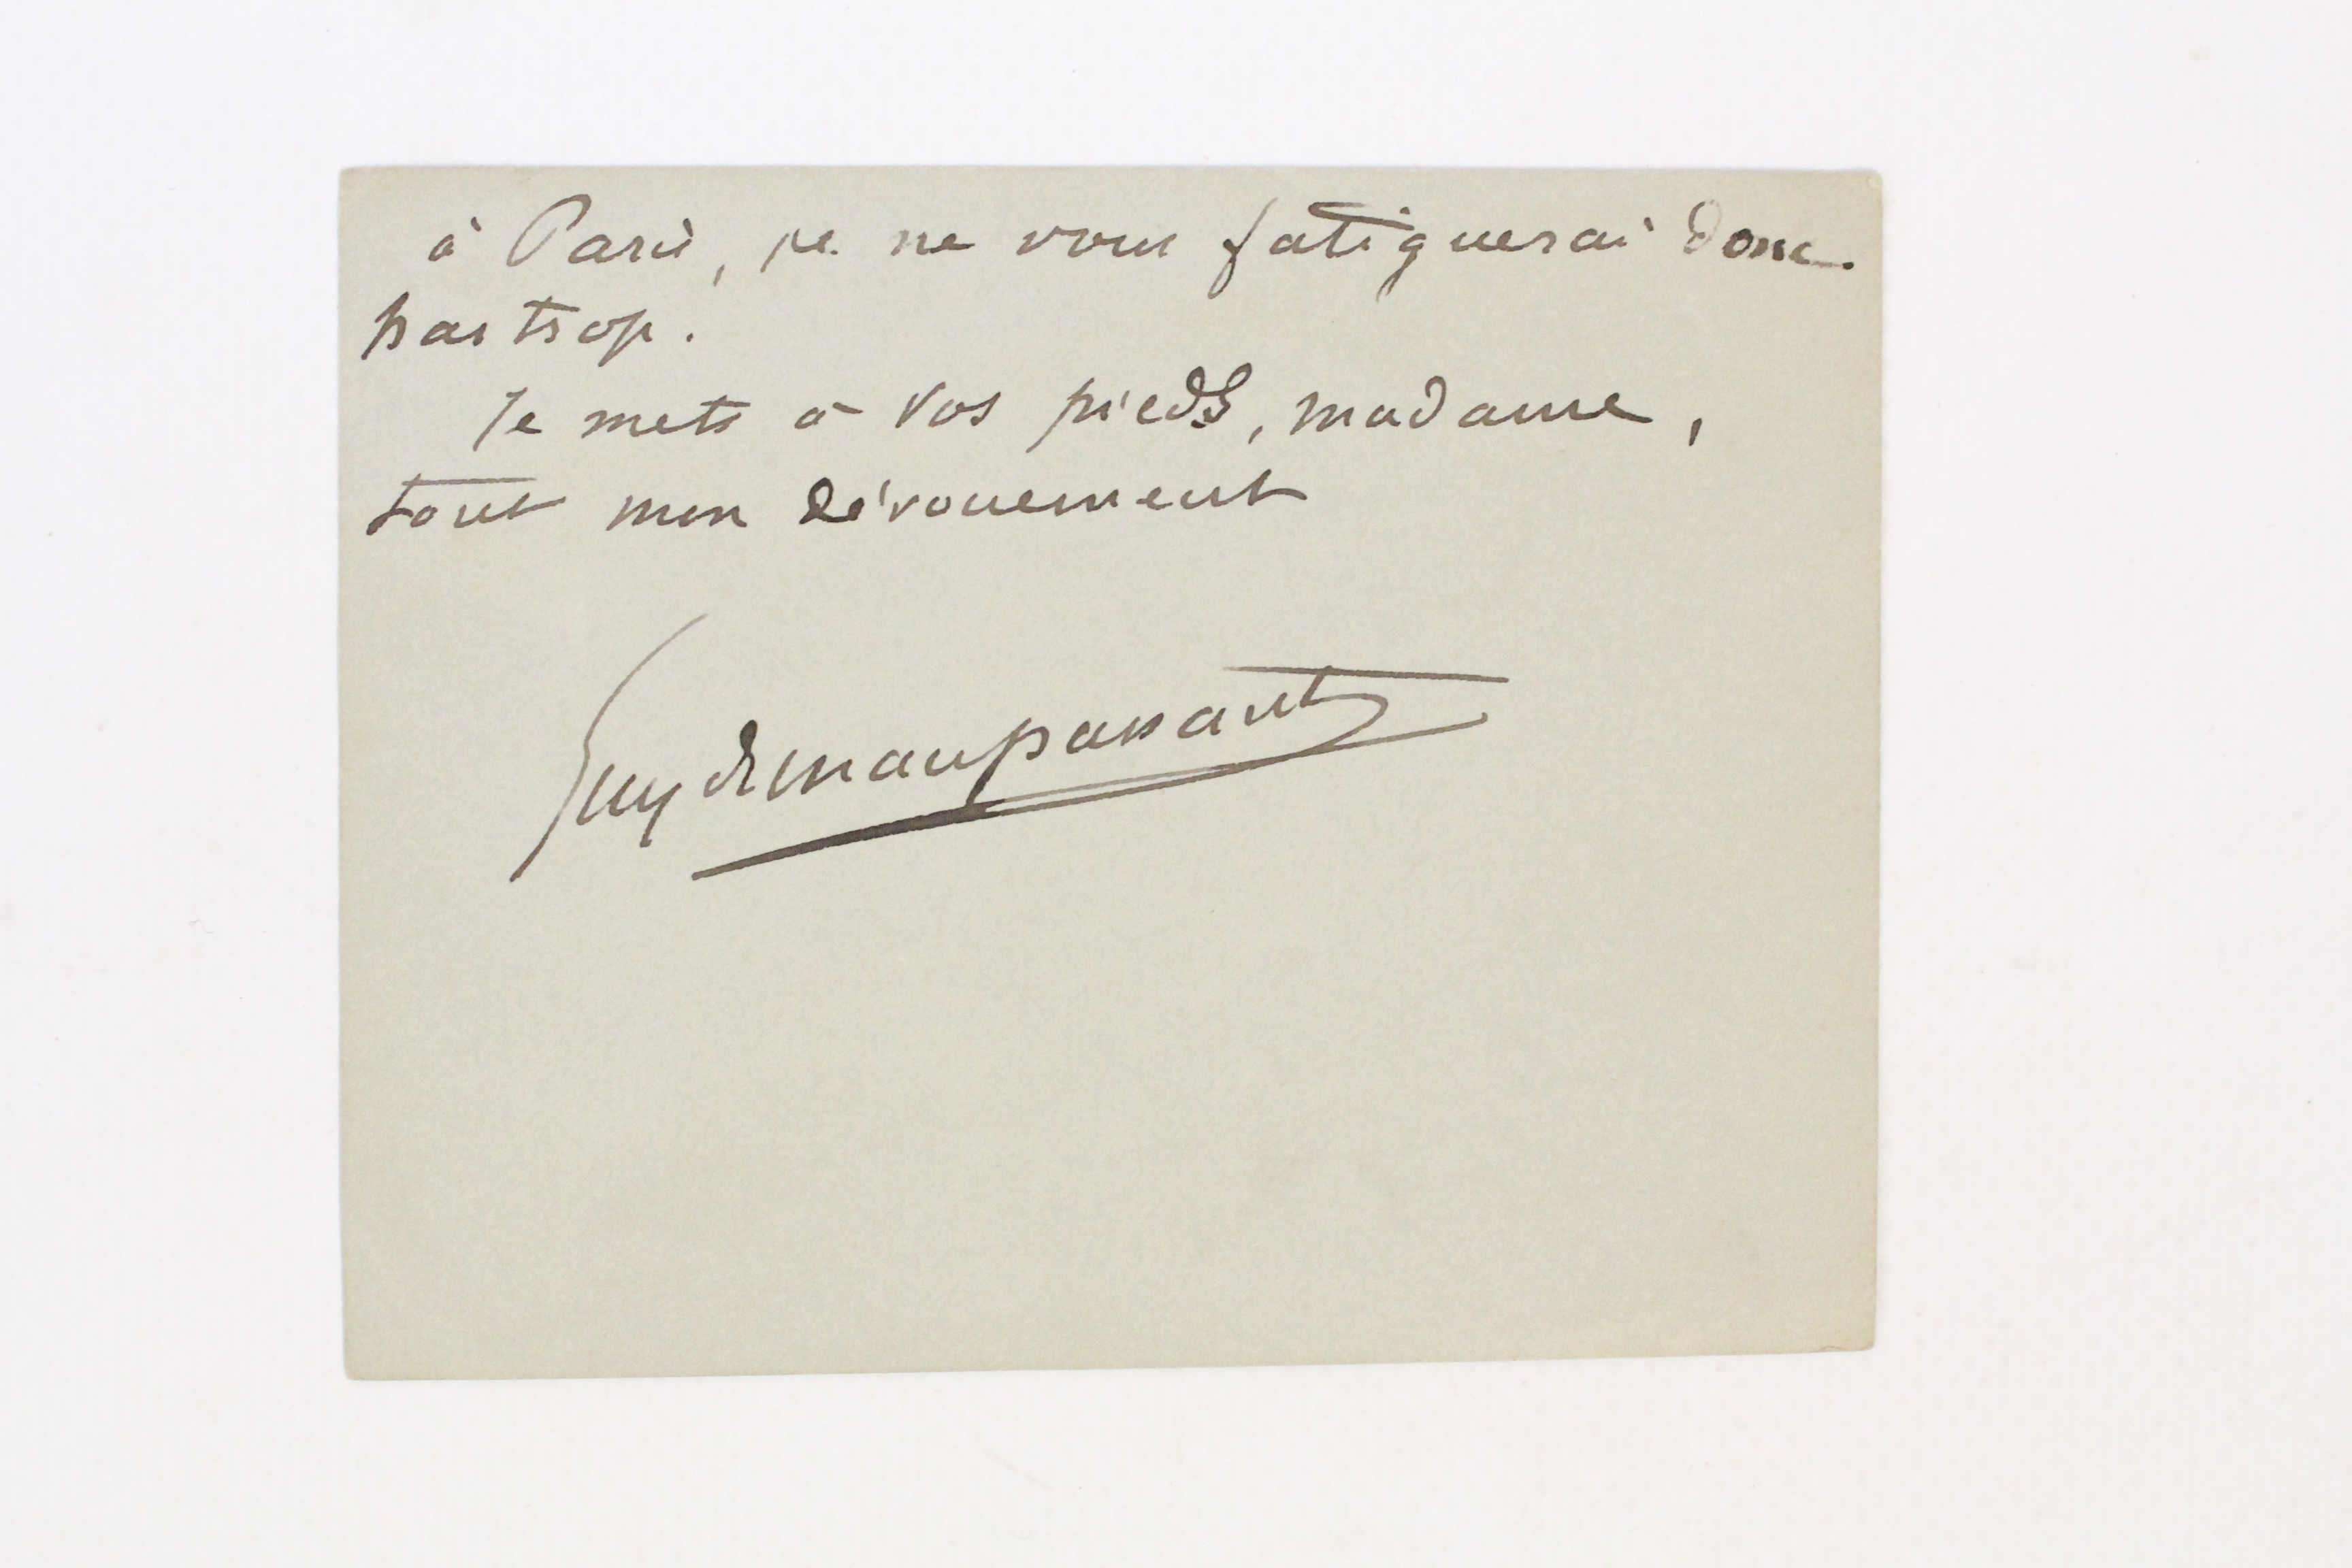 à Paris, je ne vous fatiguerai donc
pas trop.
Je mets à vos pieds, madame,
tout mon dévouement
Guy de Maupassant